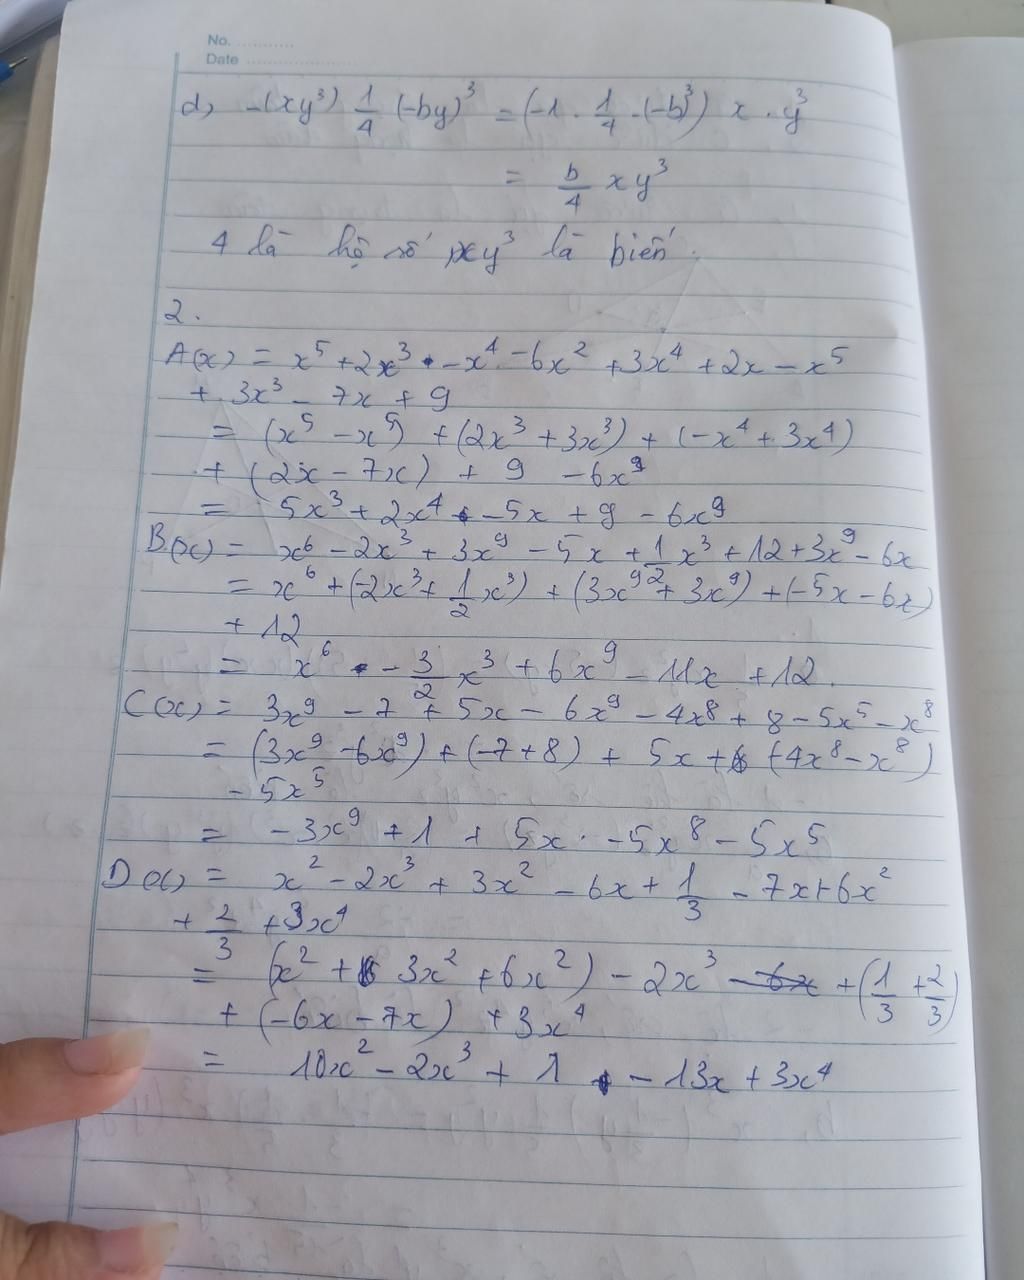 No. ...........
Date ......................
d, -(xy³) 1/4 (-by)³ = (-1 . 1/4 . (-b³)) x . y³
= b/4 xy³
4 là hệ số xy³ là biến.
2.
A(x) = x⁵ + 2x³ - x⁴ - 6x² + 3x⁴ + 2x - x⁵
+ 3x³ - 7x + 9
= (x⁵ - x⁵) + (2x³ + 3x³) + (-x⁴ + 3x⁴)
+ (2x - 7x) + 9 - 6x⁹
= 5x³ + 2x⁴ - 5x + 9 - 6x⁹
B(x) = x⁶ - 2x³ + 3x⁹ - 5x + 1/2 x³ + 12 + 3x⁹ - 6x
= x⁶ + (-2x³ + 1/2 x³) + (3x⁹ + 3x⁹) + (-5x - 6x)
+ 12
= x⁶ - 3/2 x³ + 6x⁹ - 11x + 12.
C(x) = 3x⁹ - 7 + 5x - 6x⁹ - 4x⁸ + 8 - 5x⁵ - x⁸
= (3x⁹ - 6x⁹) + (-7 + 8) + 5x + (-4x⁸ - x⁸)
- 5x⁵
= -3x⁹ + 1 + 5x - 5x⁸ - 5x⁵
D(x) = x² - 2x³ + 3x² - 6x + 1/3 - 7x + 6x²
+ 2/3 + 3x⁴
= (x² + 3x² + 6x²) - 2x³ - 6x + (1/3 + 2/3)
+ (-6x - 7x) + 3x⁴
= 10x² - 2x³ + 1 - 13x + 3x⁴